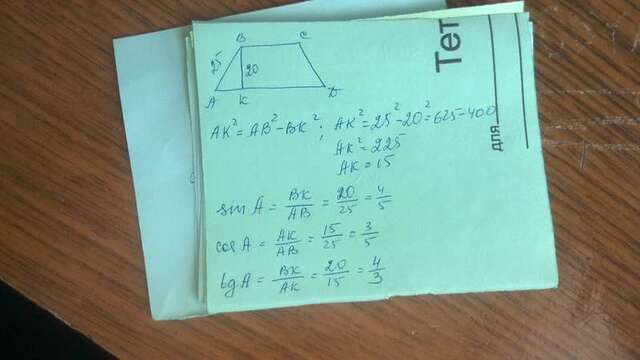 B C
25 20
A K D
AK² = AB² - BK² ; AK² = 25² - 20² = 625 - 400
AK² = 225
AK = 15
sin A = BK/AB = 20/25 = 4/5
cos A = AK/AB = 15/25 = 3/5
tg A = BK/AK = 20/15 = 4/3
Тет
для